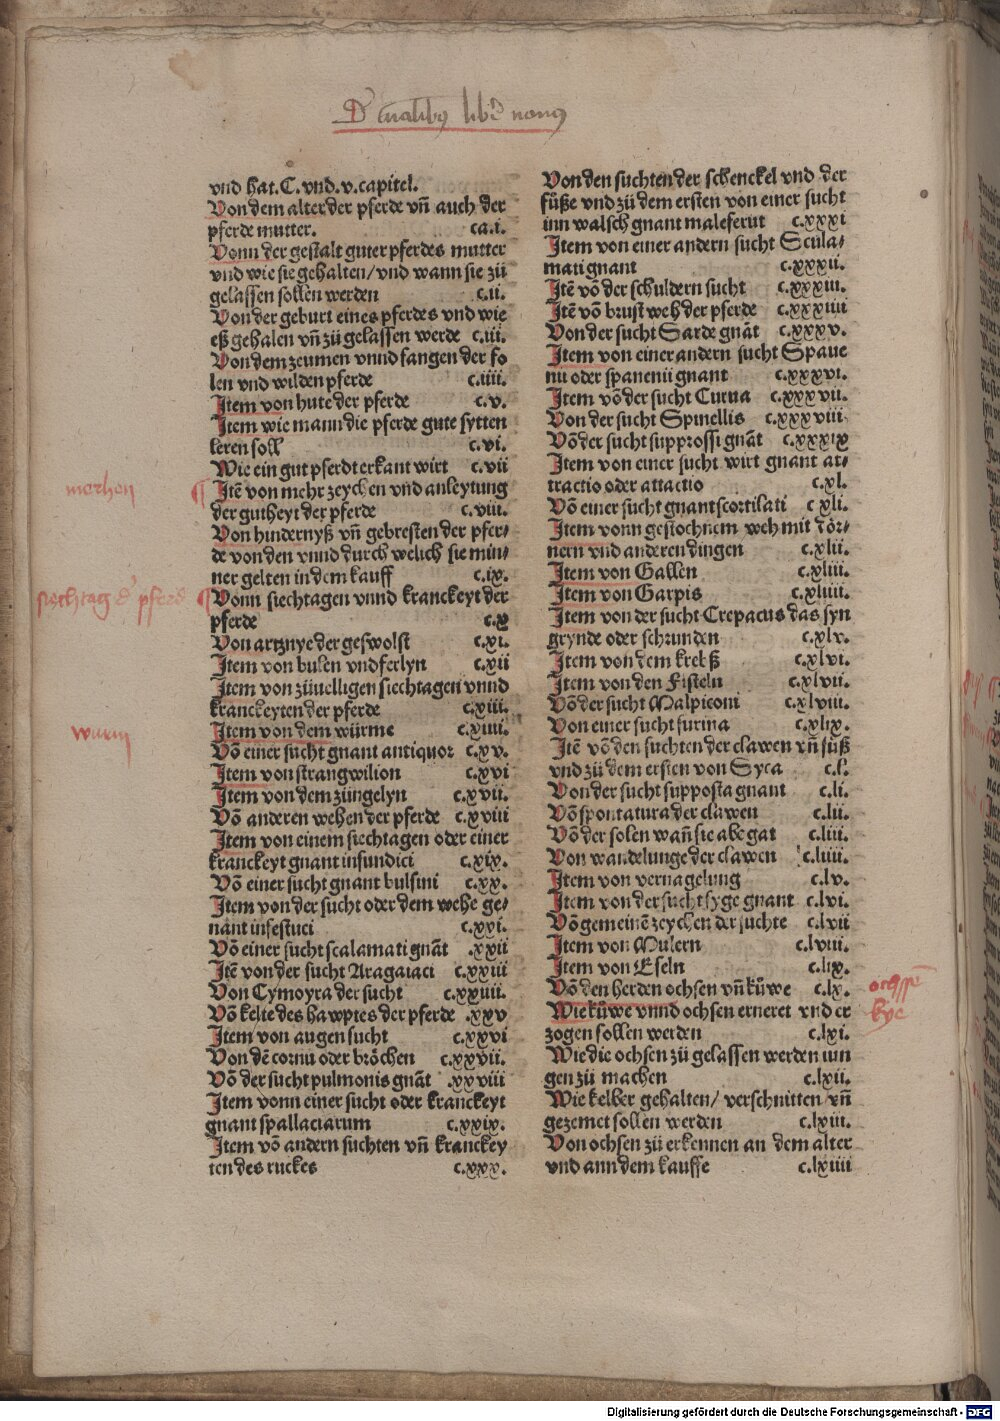 vnd hat. C. vnd. v. capitel.
Von dem alter der pferde vn̄ auch der
pferde mutter. ca.i.
Vonn der gestalt guter pferdes mutter
vnd wie sie gehalten/vnd wann sie zů
gelassen sollen werden c.ii.
Von der geburt eines pferdes vnd wie
eß gehalen vn̄ zů gelassen werde c.iii.
Von dem zeumen vnnd fangen der fo
len vnd wilden pferde c.iiii.
Item von hute der pferde c.v.
Item wie mann die pferde gute sytten
leren soll c.vi.
Wie ein gut pferdt erkant wirt c.vii
merhen
Itē von mehr zeychen vnd anleytung
der gutheyt der pferde c.viii.
Von hindernyß vn̄ gebresten der pfer-
de von den vnnd durch welich sie min-
ner gelten in dem kauff c.ix.
siechtag d' pferd
Vonn siechtagen vnnd kranckeyt der
pferde c.x
Von artznye der geswolst c.xi.
Item von bulen vnd ferlyn c.xii
Item von zůuelligen siechtagen vnnd
kranckeyten der pferde c.xiii.
wurm
Item von dem würme c.xiiii.
Võ einer sucht gnant antiquor c.xv.
Item von strangwilion c.xvi
Item von dem züngelyn c.xvii.
Võ anderen wehen der pferde c.xviii
Item von einem siechtagen oder einer
kranckeyt gnant infundici c.xix.
Võ einer sucht gnant bulsini c.xx.
Item von der sucht oder dem wehe ge-
nant infestuci c.xxi.
Võ einer sucht scalamati gnāt .xxii
Itē von der sucht Aragaiaci c.xxiii
Von Cymoyra der sucht c.xxiiii.
Võ kelte des hawptes der pferde .xxv
Item von augen sucht c.xxvi
Von dē cornu oder bröchen c.xxvii.
Võ der sucht pulmonis gnāt .xxviii
Item vonn einer sucht oder kranckeyt
gnant spallaciarum c.xxix.
Item võ andern suchten vn̄ kranckey
ten des ruckes c.xxx.
Von den suchten der schenckel vnd der
füße vnd zů dem ersten von einer sucht
inn walsch gnant maleferut c.xxxi
Item von einer andern sucht Scula-
mati gnant c.xxxii.
Itē võ der schuldern sucht c.xxxiii.
Itē võ brust weh der pferde c.xxxiiii
Von der sucht Garde gnāt c.xxxv.
Item von einer andern sucht Spaue
nu oder spanenii gnant c.xxxvi.
Item võ der sucht Curua c.xxxvii.
Von der sucht Spinellis c.xxxviii
Võ der sucht supprossi gnāt c.xxxix
Item von einer sucht wirt gnant at-
tractio oder attactio c.xl.
Võ einer sucht gnant scortilati c xli.
Item vonn gestochnem weh mit dör-
nern vnd anderen dingen c.xlii.
Item von Gallen c.xliii.
Item von Garpis c.xliiii.
Item von der sucht Crepacus das syn
grynde oder schrunden c.xlv.
Item von dem krebß c.xlvi.
Item von den Fisteln c.xlvii.
Võ der sucht Malpiconi c.xlviii.
Von einer sucht furina c.xlix.
Itē võ den suchten der clawen vn̄ füß
vnd zů dem ersten von Syca c.l.
Von der sucht supposta gnant c.li.
Võ spontatura der clawen c.lii.
Võ der solen wañ sie abe gat c.liii.
Von wandelunge der clawen c.liiii.
Item von vernagelung c.lv.
Item von der sucht fyge gnant c.lvi.
Võ gemeinē zeychen der suchte c.lvii
Item von Mulern c.lviii.
Item von Eseln c.lix.
Võ den herden ochsen vn̄ küwe c.lx.
Wie küwe vnnd ochsen erneret vnd er
zogen sollen werden c.lxi.
Wie die ochsen zů gelassen werden iun
gen zů machen c.lxii.
Wie kelber gehalten/ verschnitten/ vn̄
gezemet sollen werden c.lxiii.
Von ochsen zů erkennen an dem alter
vnd ann dem kauffe c.lxiiii
kye
Digitalisierung gefördert durch die Deutsche Forschungsgemeinschaft - DFG